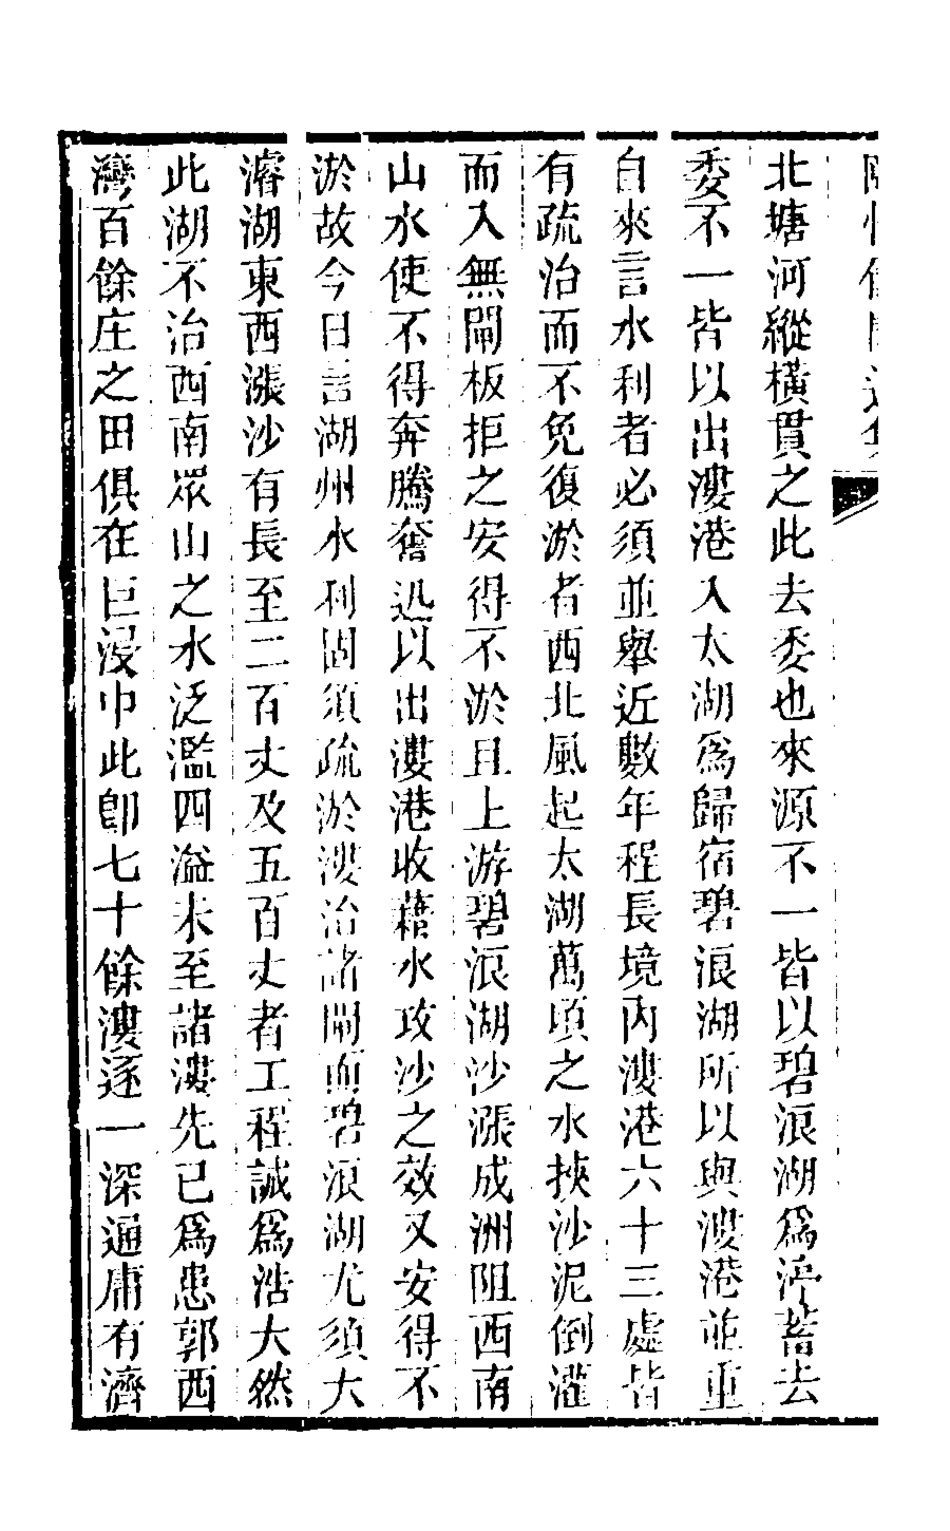 北塘河縱橫貫之此去委也來源不一皆以碧浪湖爲渟蓄去
委不一皆以出漊港入太湖爲歸宿碧浪湖所以與漊港並重
自來言水利者必須並舉近數年程長境內漊港六十三處皆
有疏治而不免復淤者西北風起太湖萬頃之水挾沙泥倒灌
而入無閘板拒之安得不淤且上游碧浪湖沙漲成洲阻西南
山水使不得奔騰奮迅以出漊港收藉水攻沙之效又安得不
淤故今日言湖州水利固須疏淤漊治諸閘而碧浪湖尤須大
濬湖東西漲沙有長至二百丈及五百丈者工程誠爲浩大然
此湖不治西南眾山之水泛濫四溢未至諸漊先已爲患郭西
灣百餘庄之田俱在巨浸中此卽七十餘漊逐一深通庸有濟